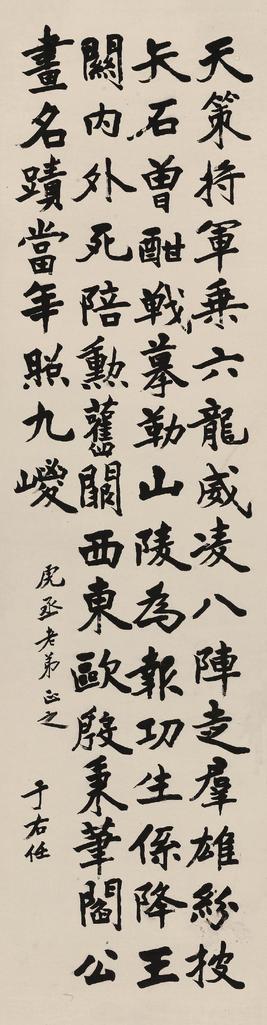 天策将軍乗六龍威凌八陣走羣雄紛披
大石曾酣戦摹勒山陵為報功生係降王
闕内外死陪勲舊閟西東歐殷秉筆閻公
畫名蹟當年照九嵕
虎丞老弟正之
于右任